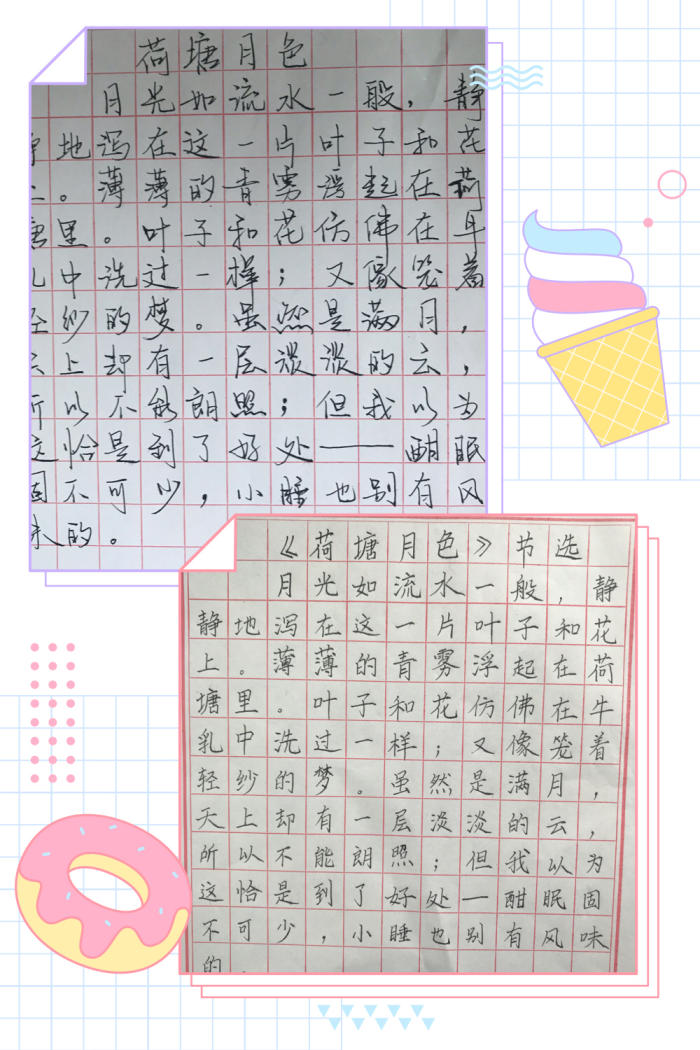 荷塘月色
月光如流水一般，静
静地泻在这一片叶子和花
上。薄薄的青雾浮起在荷
塘里。叶子和花仿佛在牛
乳中洗过一样；又像笼着
轻纱的梦。虽然是满月，
天上却有一层淡淡的云，
所以不能朗照；但我以为
这恰是到了好处——酣眠
固不可少，小睡也别有风
味的。
《荷塘月色》节选
月光如流水一般，静
静地泻在这一片叶子和花
上。薄薄的青雾浮起在荷
塘里。叶子和花仿佛在牛
乳中洗过一样；又像笼着
轻纱的梦。虽然是满月，
天上却有一层淡淡的云，
所以不能朗照；但我以为
这恰是到了好处—酣眠固
不可少，小睡也别有风味
的.